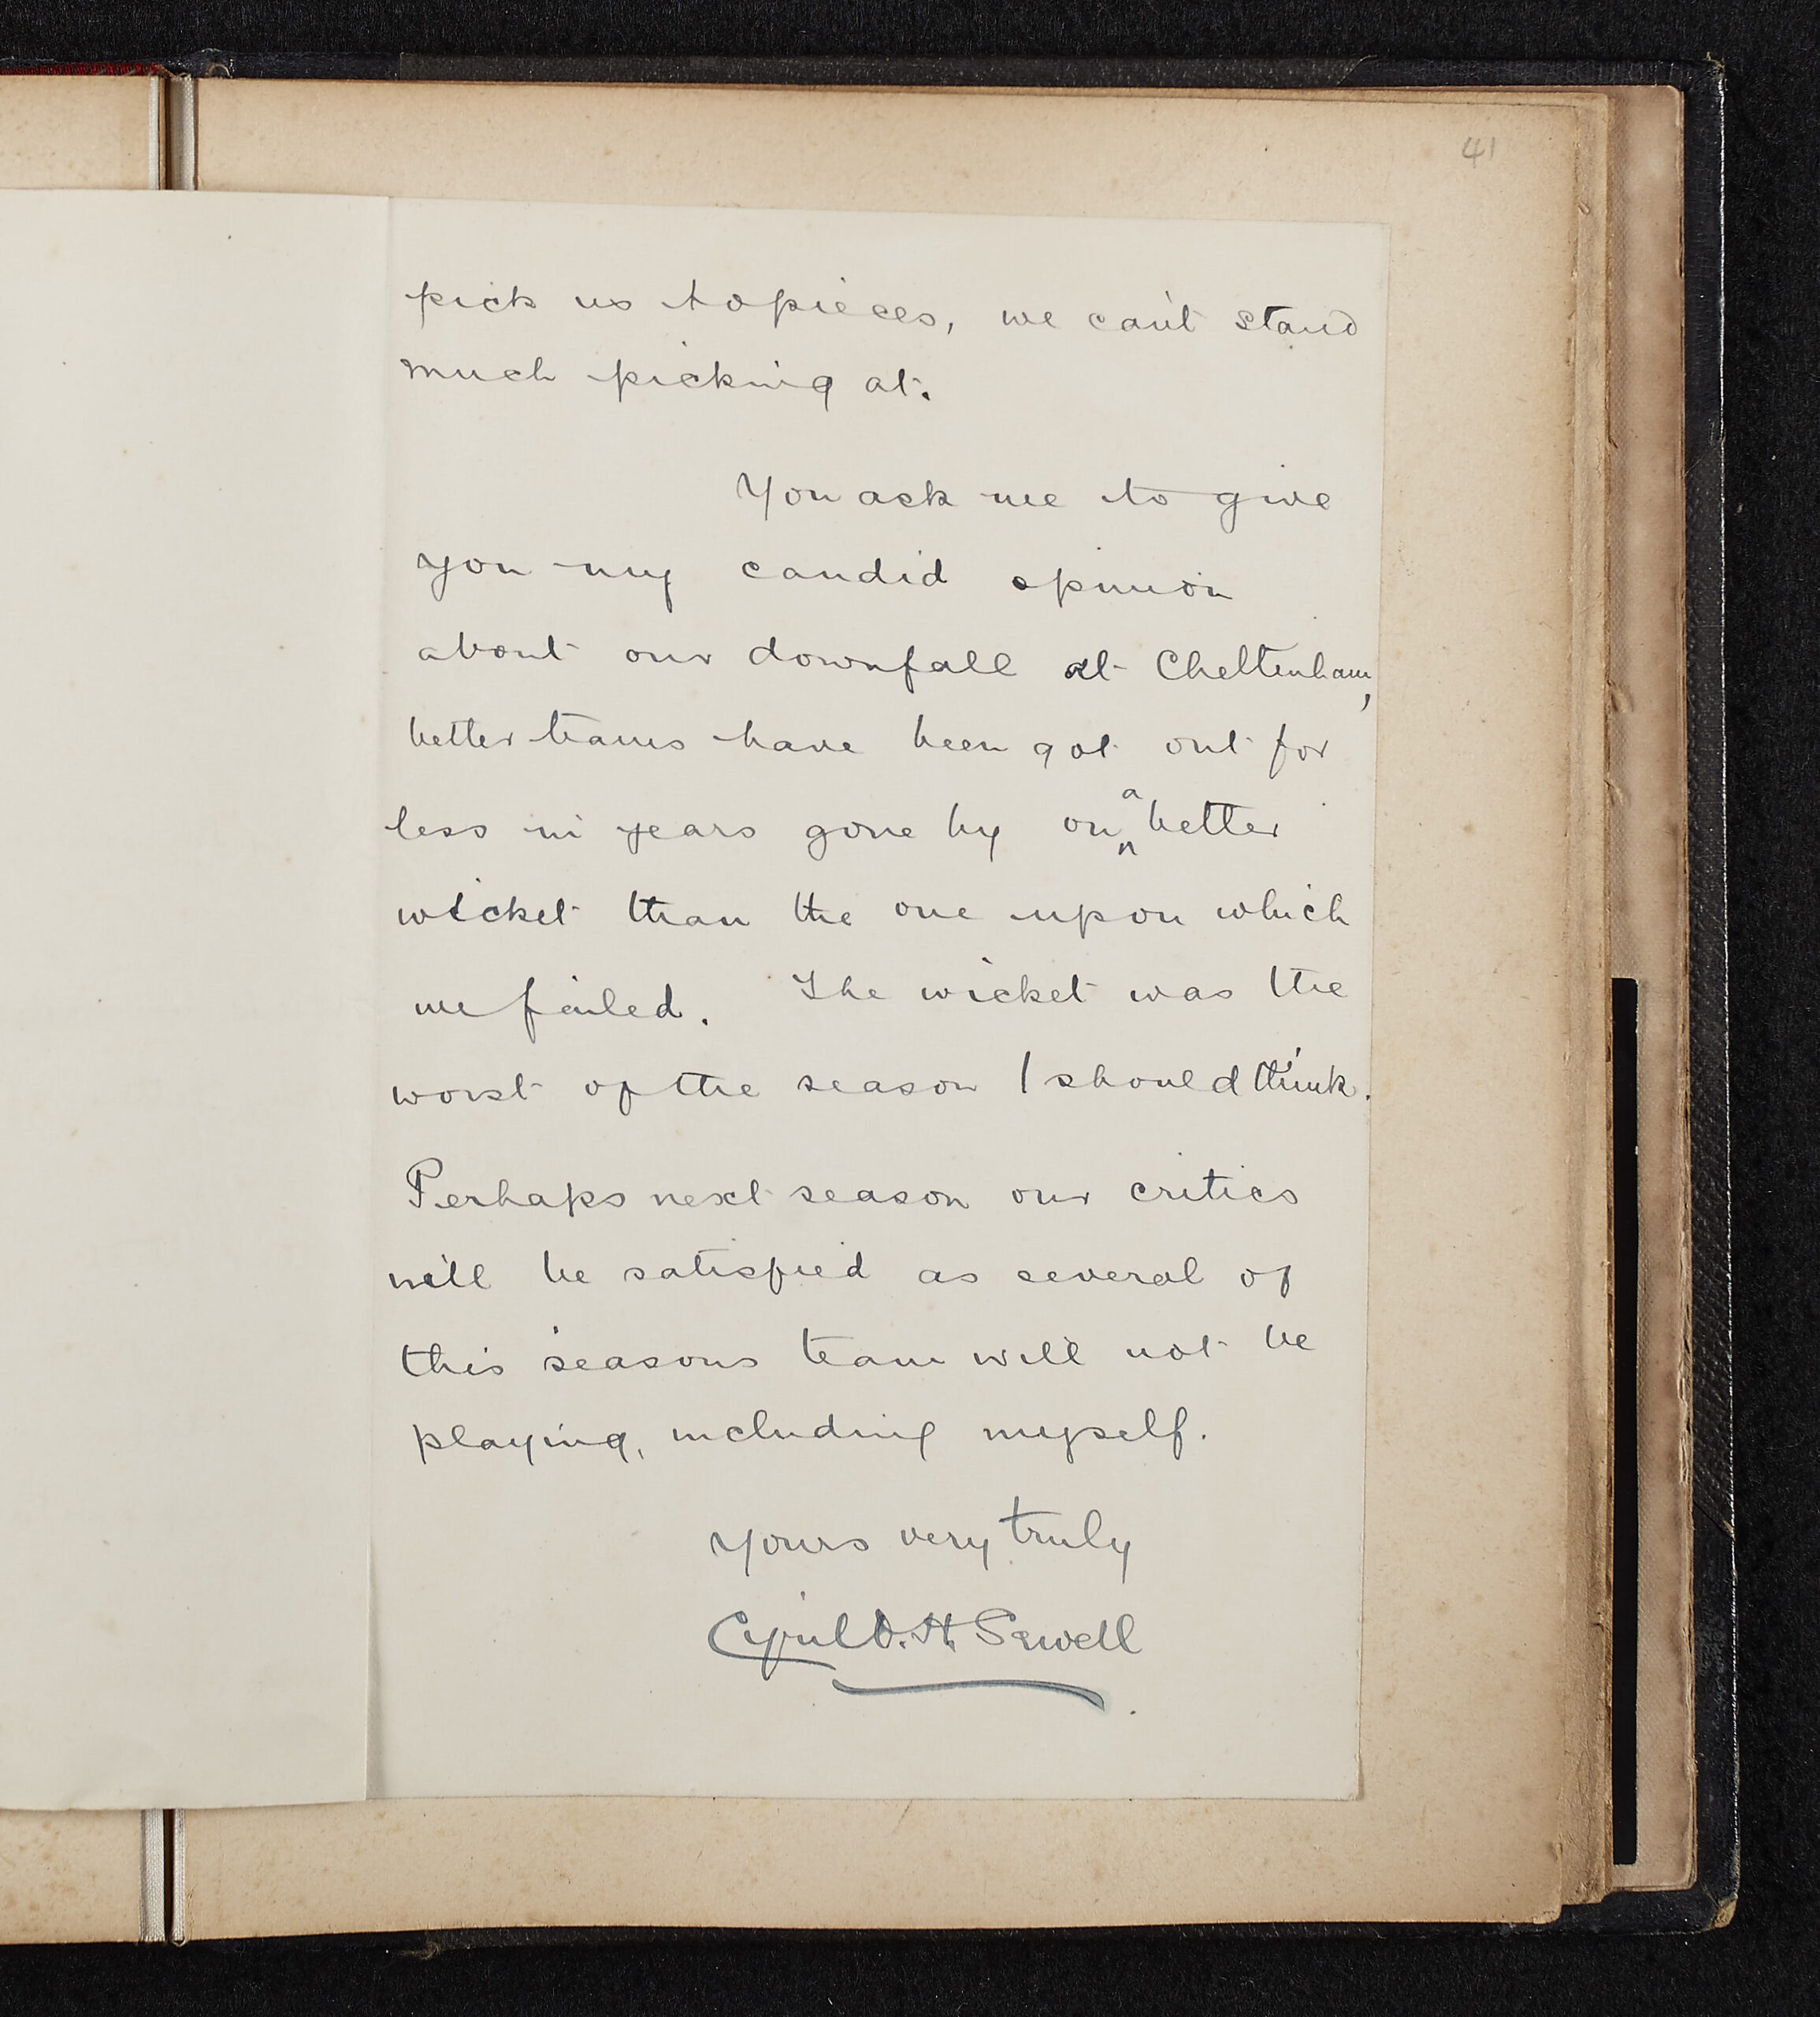 41
pick us to pieces, we can't stand
much picking at.
You ask me to give
you my candid opinion
about our downfall at Cheltenham,
better teams have been got out for
less in years gone by on a better
wicket than the one upon which
we failed. The wicket was the
worst of the season I should think.
Perhaps next season our critics
will be satisfied as several of
this seasons team will not be
playing, including myself.
Yours very truly
Cyril O. H. Sewell